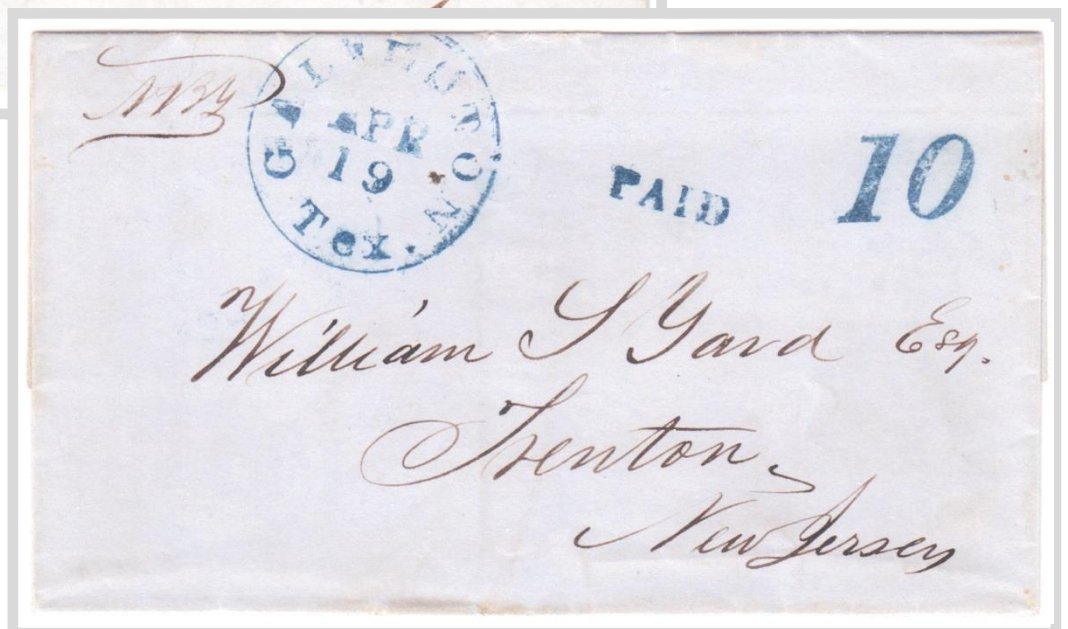 GALVESTON
APR
19
Tex.
PAID
10
William S Yard Esq.
Trenton,
New Jersey